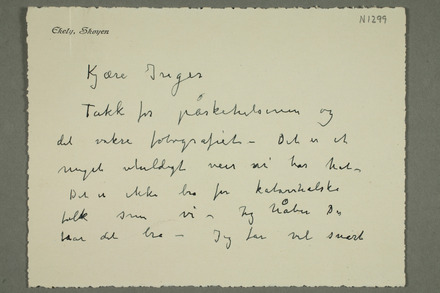 N1299
Ekely, Skøyen
Kjære Inger
Takk for påskehilsenen og
det vakre fotografiet – Det er et
meget uheldigt veir vi har hat –
Det er ikke bra for katarrhalske
folk som vi – Jeg håber Du
har det bra – Jeg tar vel snart